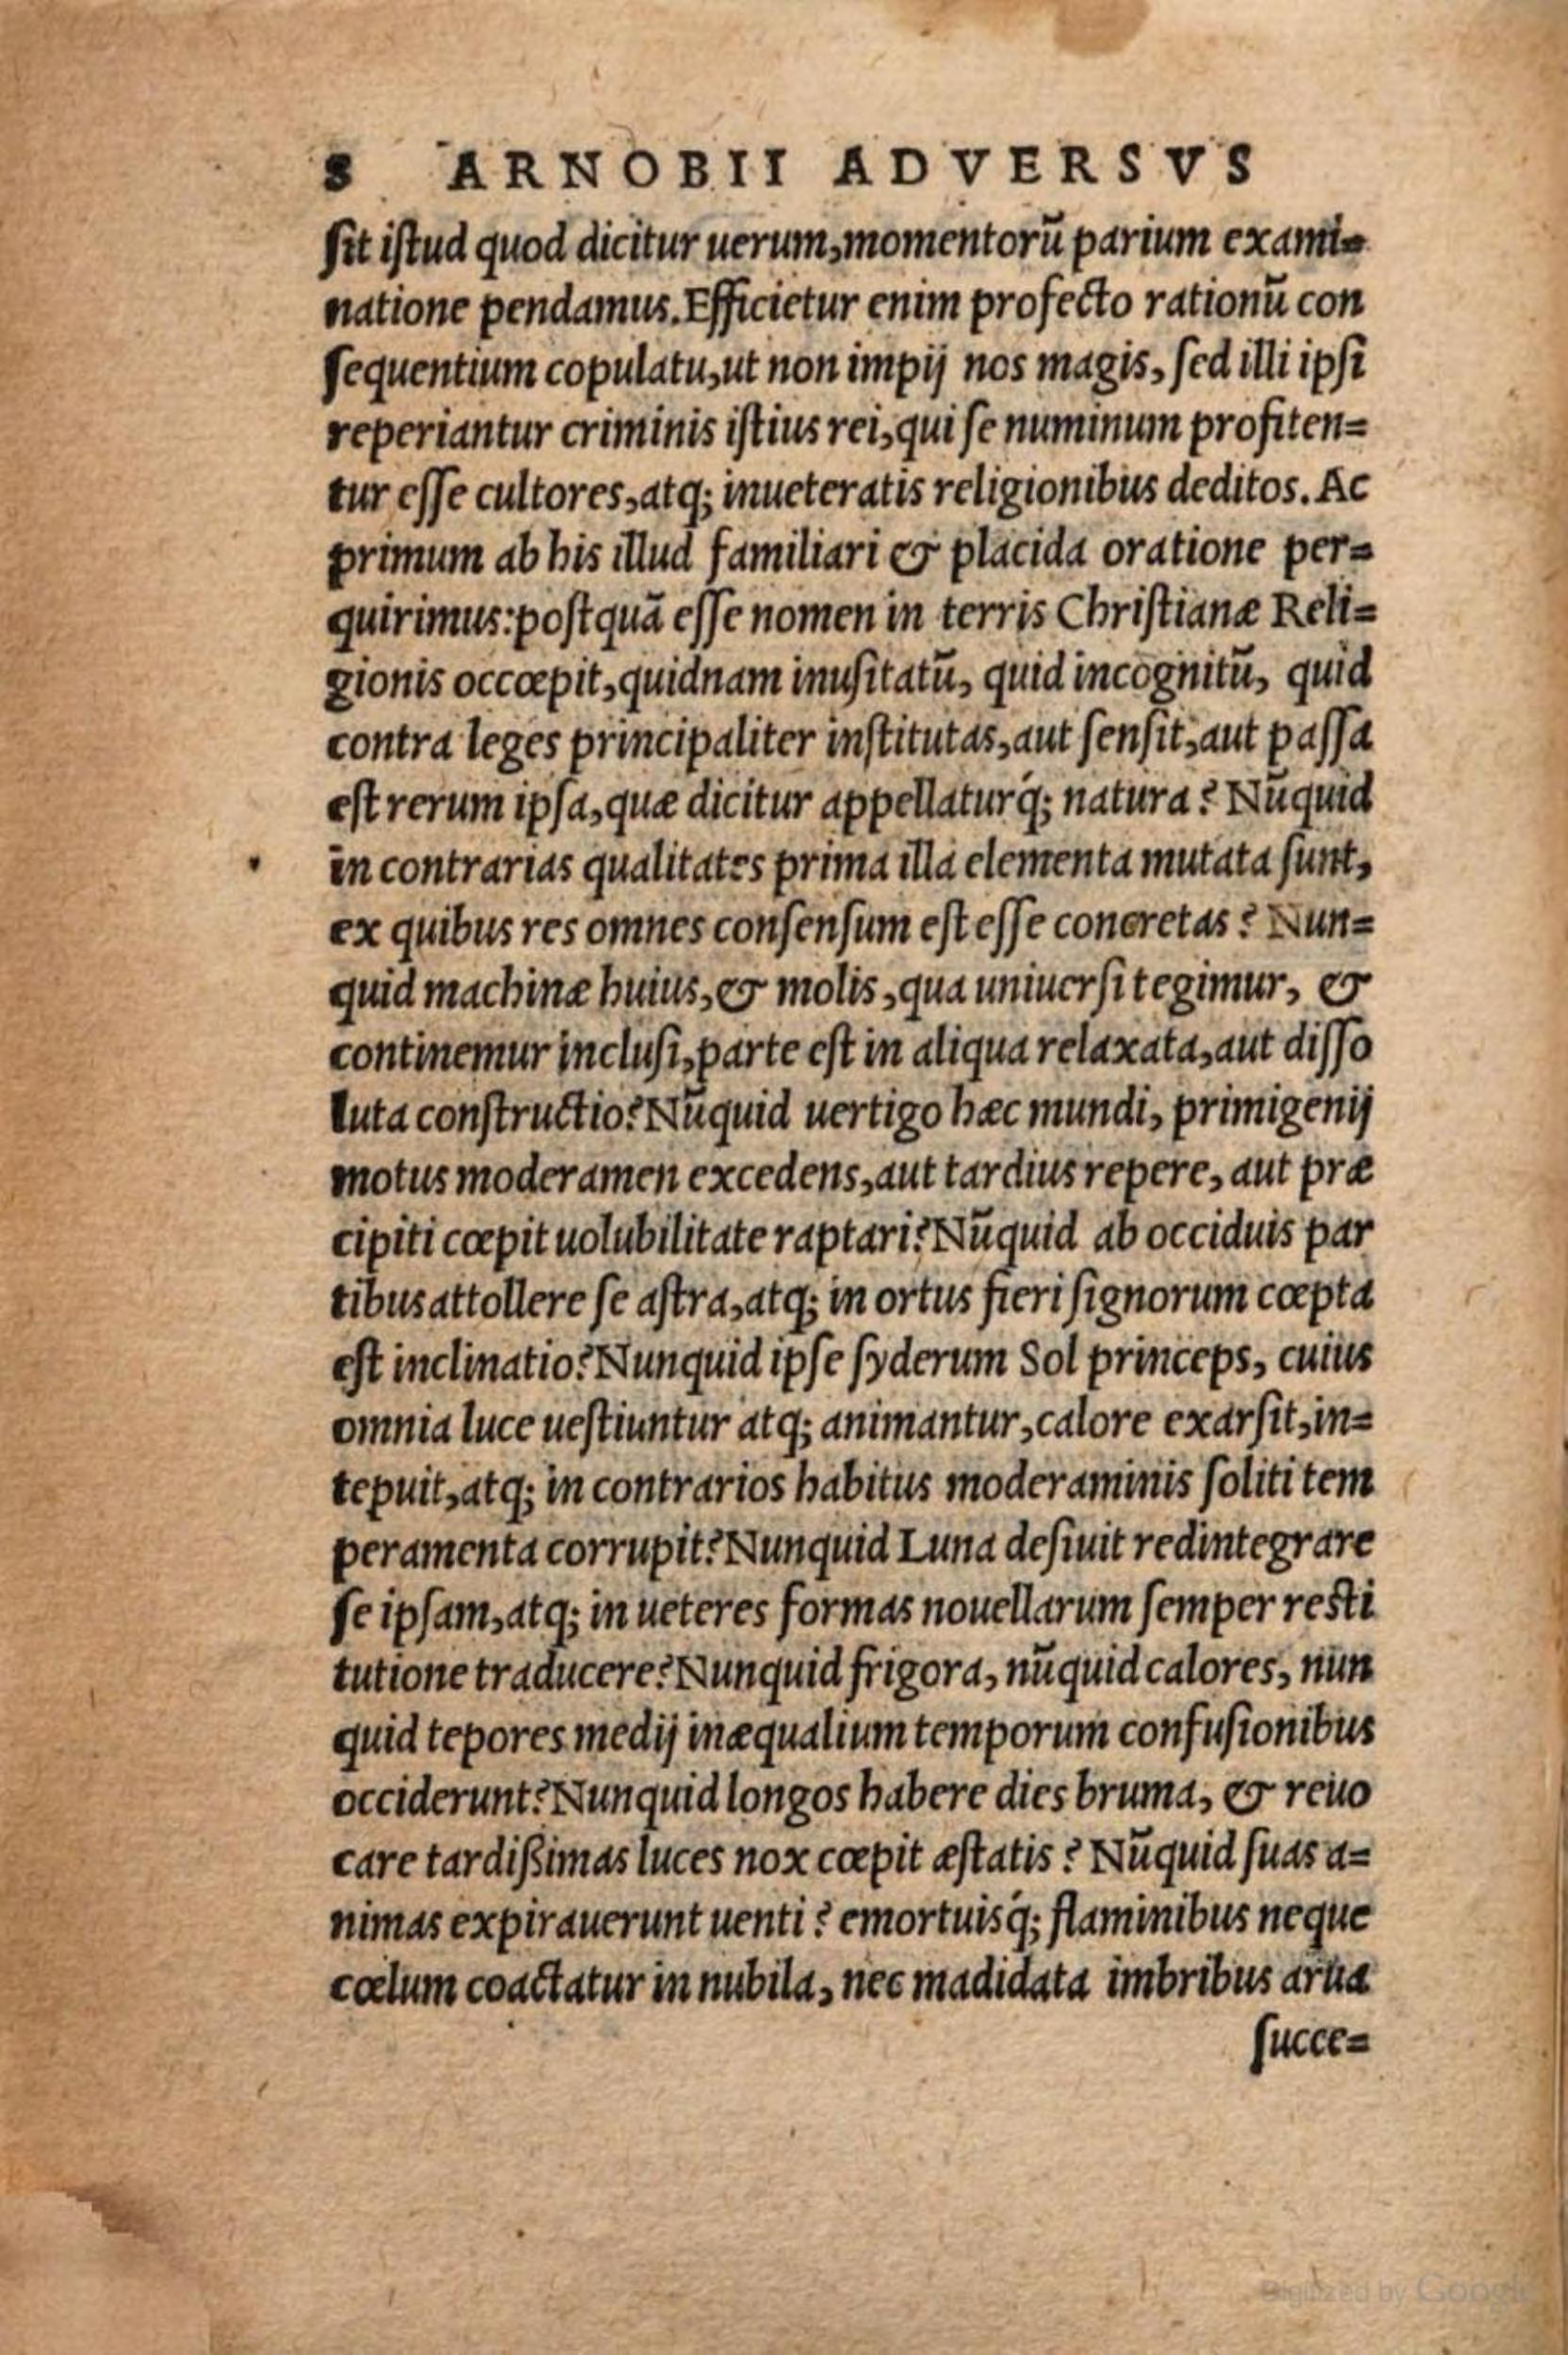 8 ARNOBII ADVERSVS
ſit iſtud quod dicitur uerum, momentorū parium exami=
natione pendamus. Efficietur enim profecto rationū con
ſequentium copulatu, ut non impij nos magis, ſed illi ipſi
reperiantur criminis iſtius rei, qui ſe numinum profiten=
tur eſſe cultores, atq; inueteratis religionibus deditos. Ac
primum ab his illud familiari & placida oratione per=
quirimus: poſtquā eſſe nomen in terris Chriſtianæ Reli=
gionis occœpit, quidnam inuſitatū, quid incognitū, quid
contra leges principaliter inſtitutas, aut ſenſit, aut paſſa
eſt rerum ipſa, quæ dicitur appellaturq́; natura? Nūquid
in contrarias qualitates prima illa elementa mutata ſunt,
ex quibus res omnes conſenſum eſt eſſe concretas? Nun=
quid machinæ huius, & molis, qua uniuerſi tegimur, &
continemur incluſi, parte eſt in aliqua relaxata, aut diſſo
luta conſtructio? Nūquid uertigo hæc mundi, primigenij
motus moderamen excedens, aut tardius repere, aut præ
cipiti cœpit uolubilitate raptari? Nūquid ab occiduis par
tibus attollere ſe aſtra, atq; in ortus fieri ſignorum cœpta
eſt inclinatio? Nunquid ipſe ſyderum Sol princeps, cuius
omnia luce ueſtiuntur atq; animantur, calore exarſit, in=
tepuit, atq; in contrarios habitus moderaminis ſoliti tem
peramenta corrupit? Nunquid Luna deſiuit redintegrare
ſe ipſam, atq; in ueteres formas nouellarum ſemper reſti
tutione traducere? Nunquid frigora, nūquid calores, nun
quid tepores medij inæqualium temporum confuſionibus
occiderunt? Nunquid longos habere dies bruma, & reuo
care tardißimas luces nox cœpit æſtatis? Nūquid ſuas a=
nimas expirauerunt uenti? emortuisq́; flaminibus neque
cœlum coactatur in nubila, nec madidata imbribus arua
ſucce=
Digitized by Google